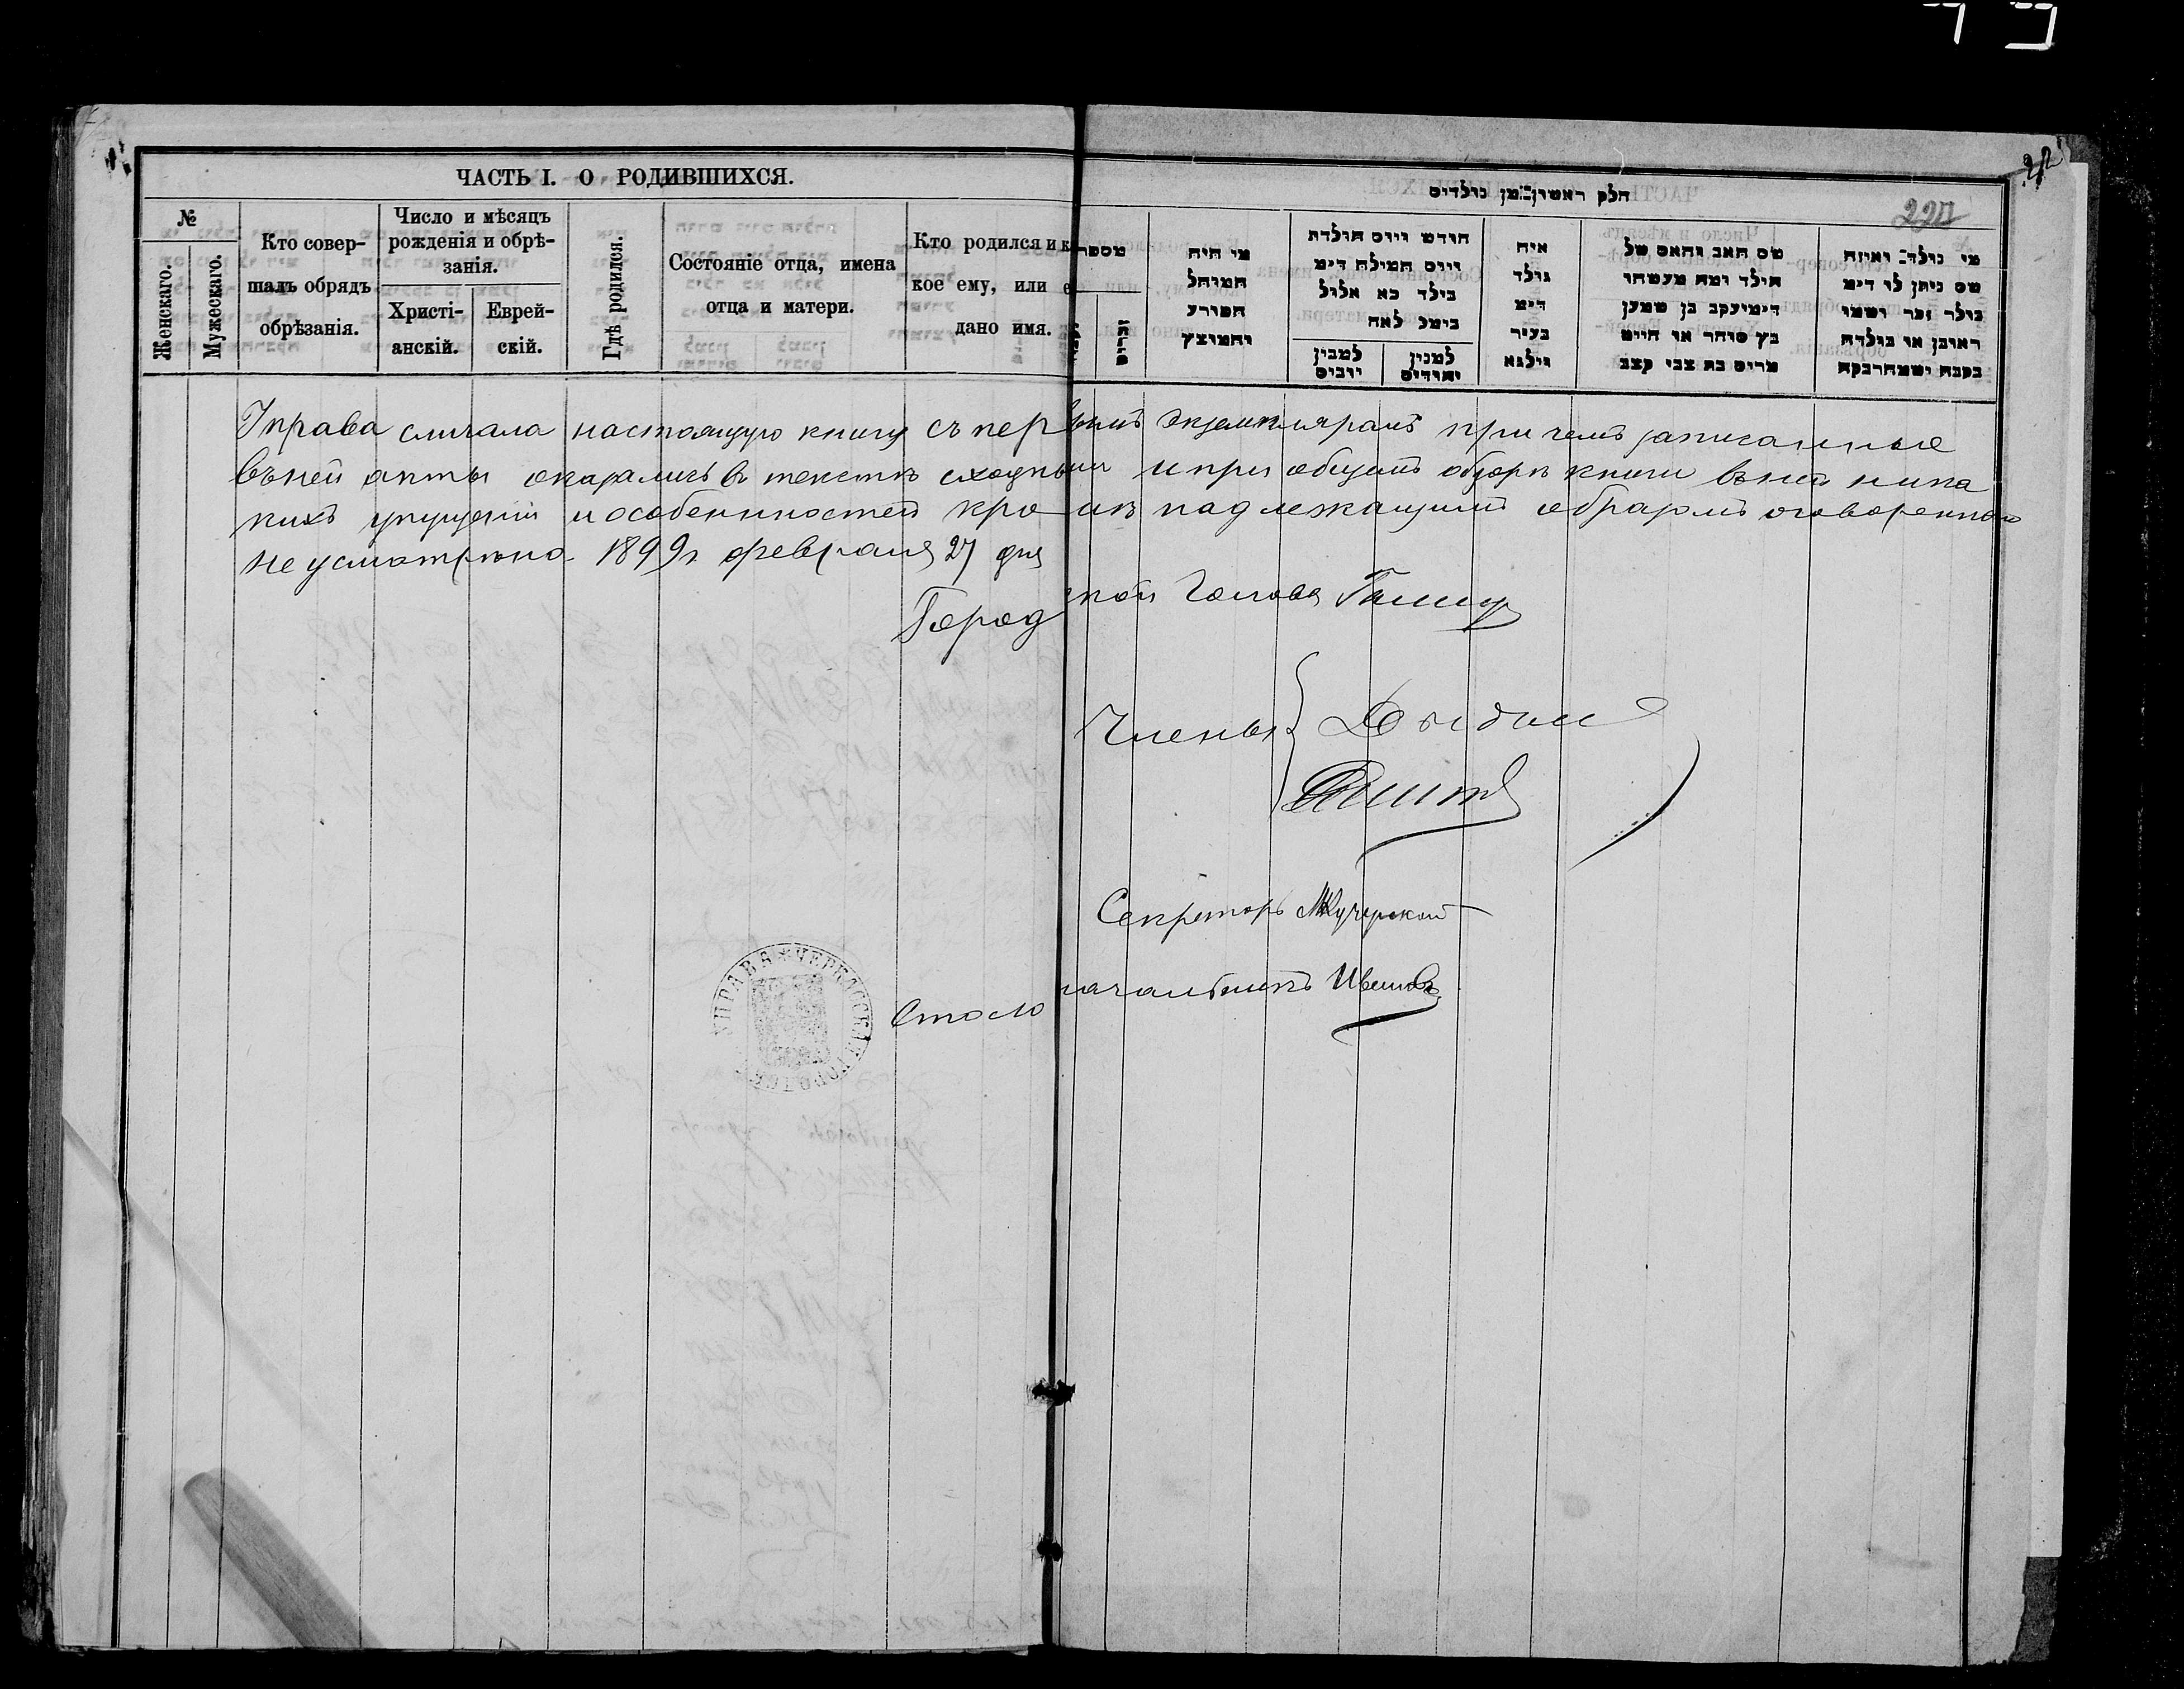 ЧАСТЬ I. О РОДИВШИХСЯ.
№
Женскаго.
Мужескаго.
Кто совер-
шалъ обрядъ
обрѣзанія.
Число и мѣсяцъ
рожденія и обрѣ-
занія.
Христі-
анскій.
Еврей-
скій.
Гдѣ родился.
Состояніе отца, имена
отца и матери.
Кто родился и к
кое ему, или е
дано имя.
חלק ראשון מן נולדים
220
מספר
מי היה
המוהל
הפורע
והמוצץ
חודש ויום הולדת
ויום המילה דימ
בילד כא אלול
בימל לאח
למנין
יהודים
למנין
יוניס
איה
נולד
דימ
בעיר
ווילנא
שם האב והאם של
הילד ומה מעשהו
דימיעקב בן שמען
כץ סוחר או חייט
מרים בת צבי קצב
מי נולד ואיזה
שם ניתן לו דימ
נולד זכר ושמו
ראובן או נולדה
נקבה ושמה רבקה
Управа сличала настоящую книгу съ первымъ экземпляромъ при чемъ записанные
въ ней акты оказались въ текстѣ сходными и при общемъ обзорѣ книги въ ней ника
кихъ упущеній и особенностей кромѣ надлежащимъ образомъ оговоренныхъ
не усмотрѣно. 1899 г. февраля 27 дня
Городской Голова
Члены
Секретарь
Столоначальникъ Ивановъ
УПРАВА * ЧЕРКАССКАЯ ГОРОДСК